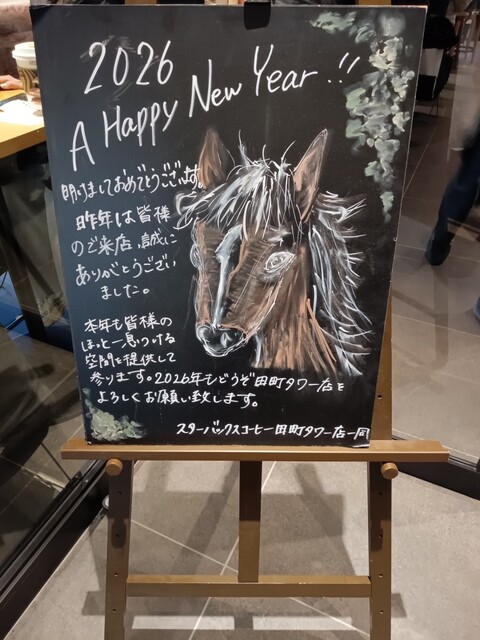 2026
A Happy New Year!!
明けましておめでとうございます。
昨年は皆様
のご来店、誠に
ありがとうござい
ました。
本年も皆様の
ほっと一息つける
空間を提供して
参ります。2026年もどうぞ田町タワー店を
よろしくお願い致します。
スターバックスコーヒー田町タワー店一同